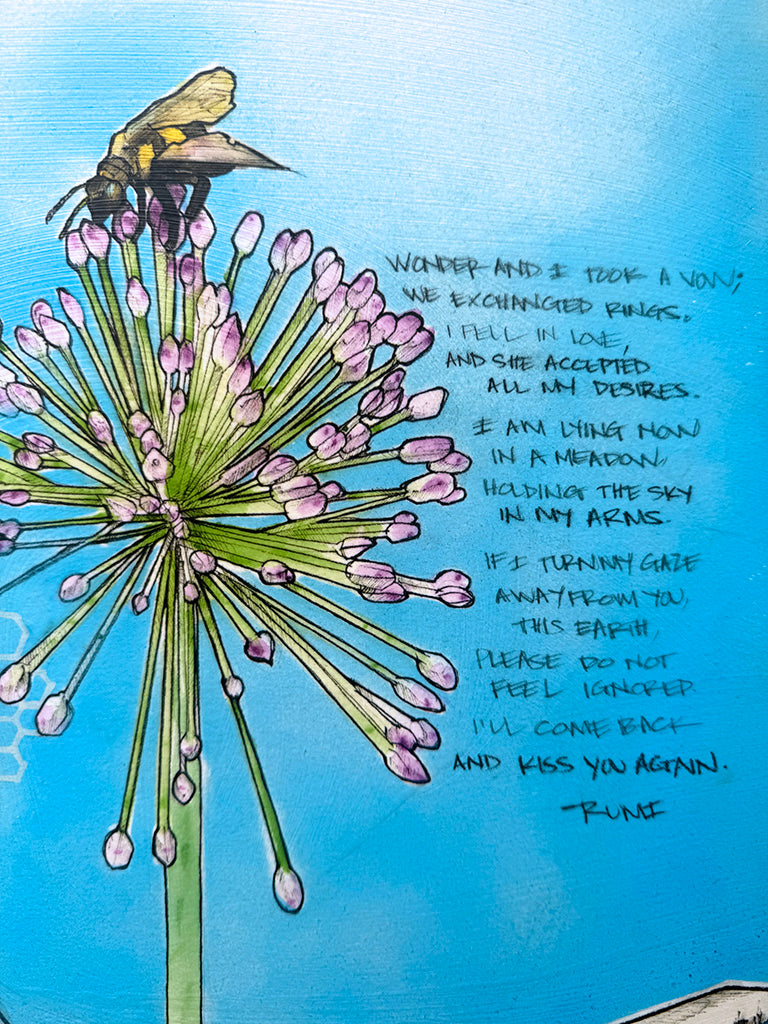 WONDER AND I TOOK A VOW;
WE EXCHANGED RINGS.
I FELL IN LOVE,
AND SHE ACCEPTED
ALL MY DESIRES.
I AM LYING NOW
IN A MEADOW,
HOLDING THE SKY
IN MY ARMS.
IF I TURN MY GAZE
AWAY FROM YOU,
THIS EARTH,
PLEASE DO NOT
FEEL IGNORED.
I'LL COME BACK
AND KISS YOU AGAIN.
-RUMI